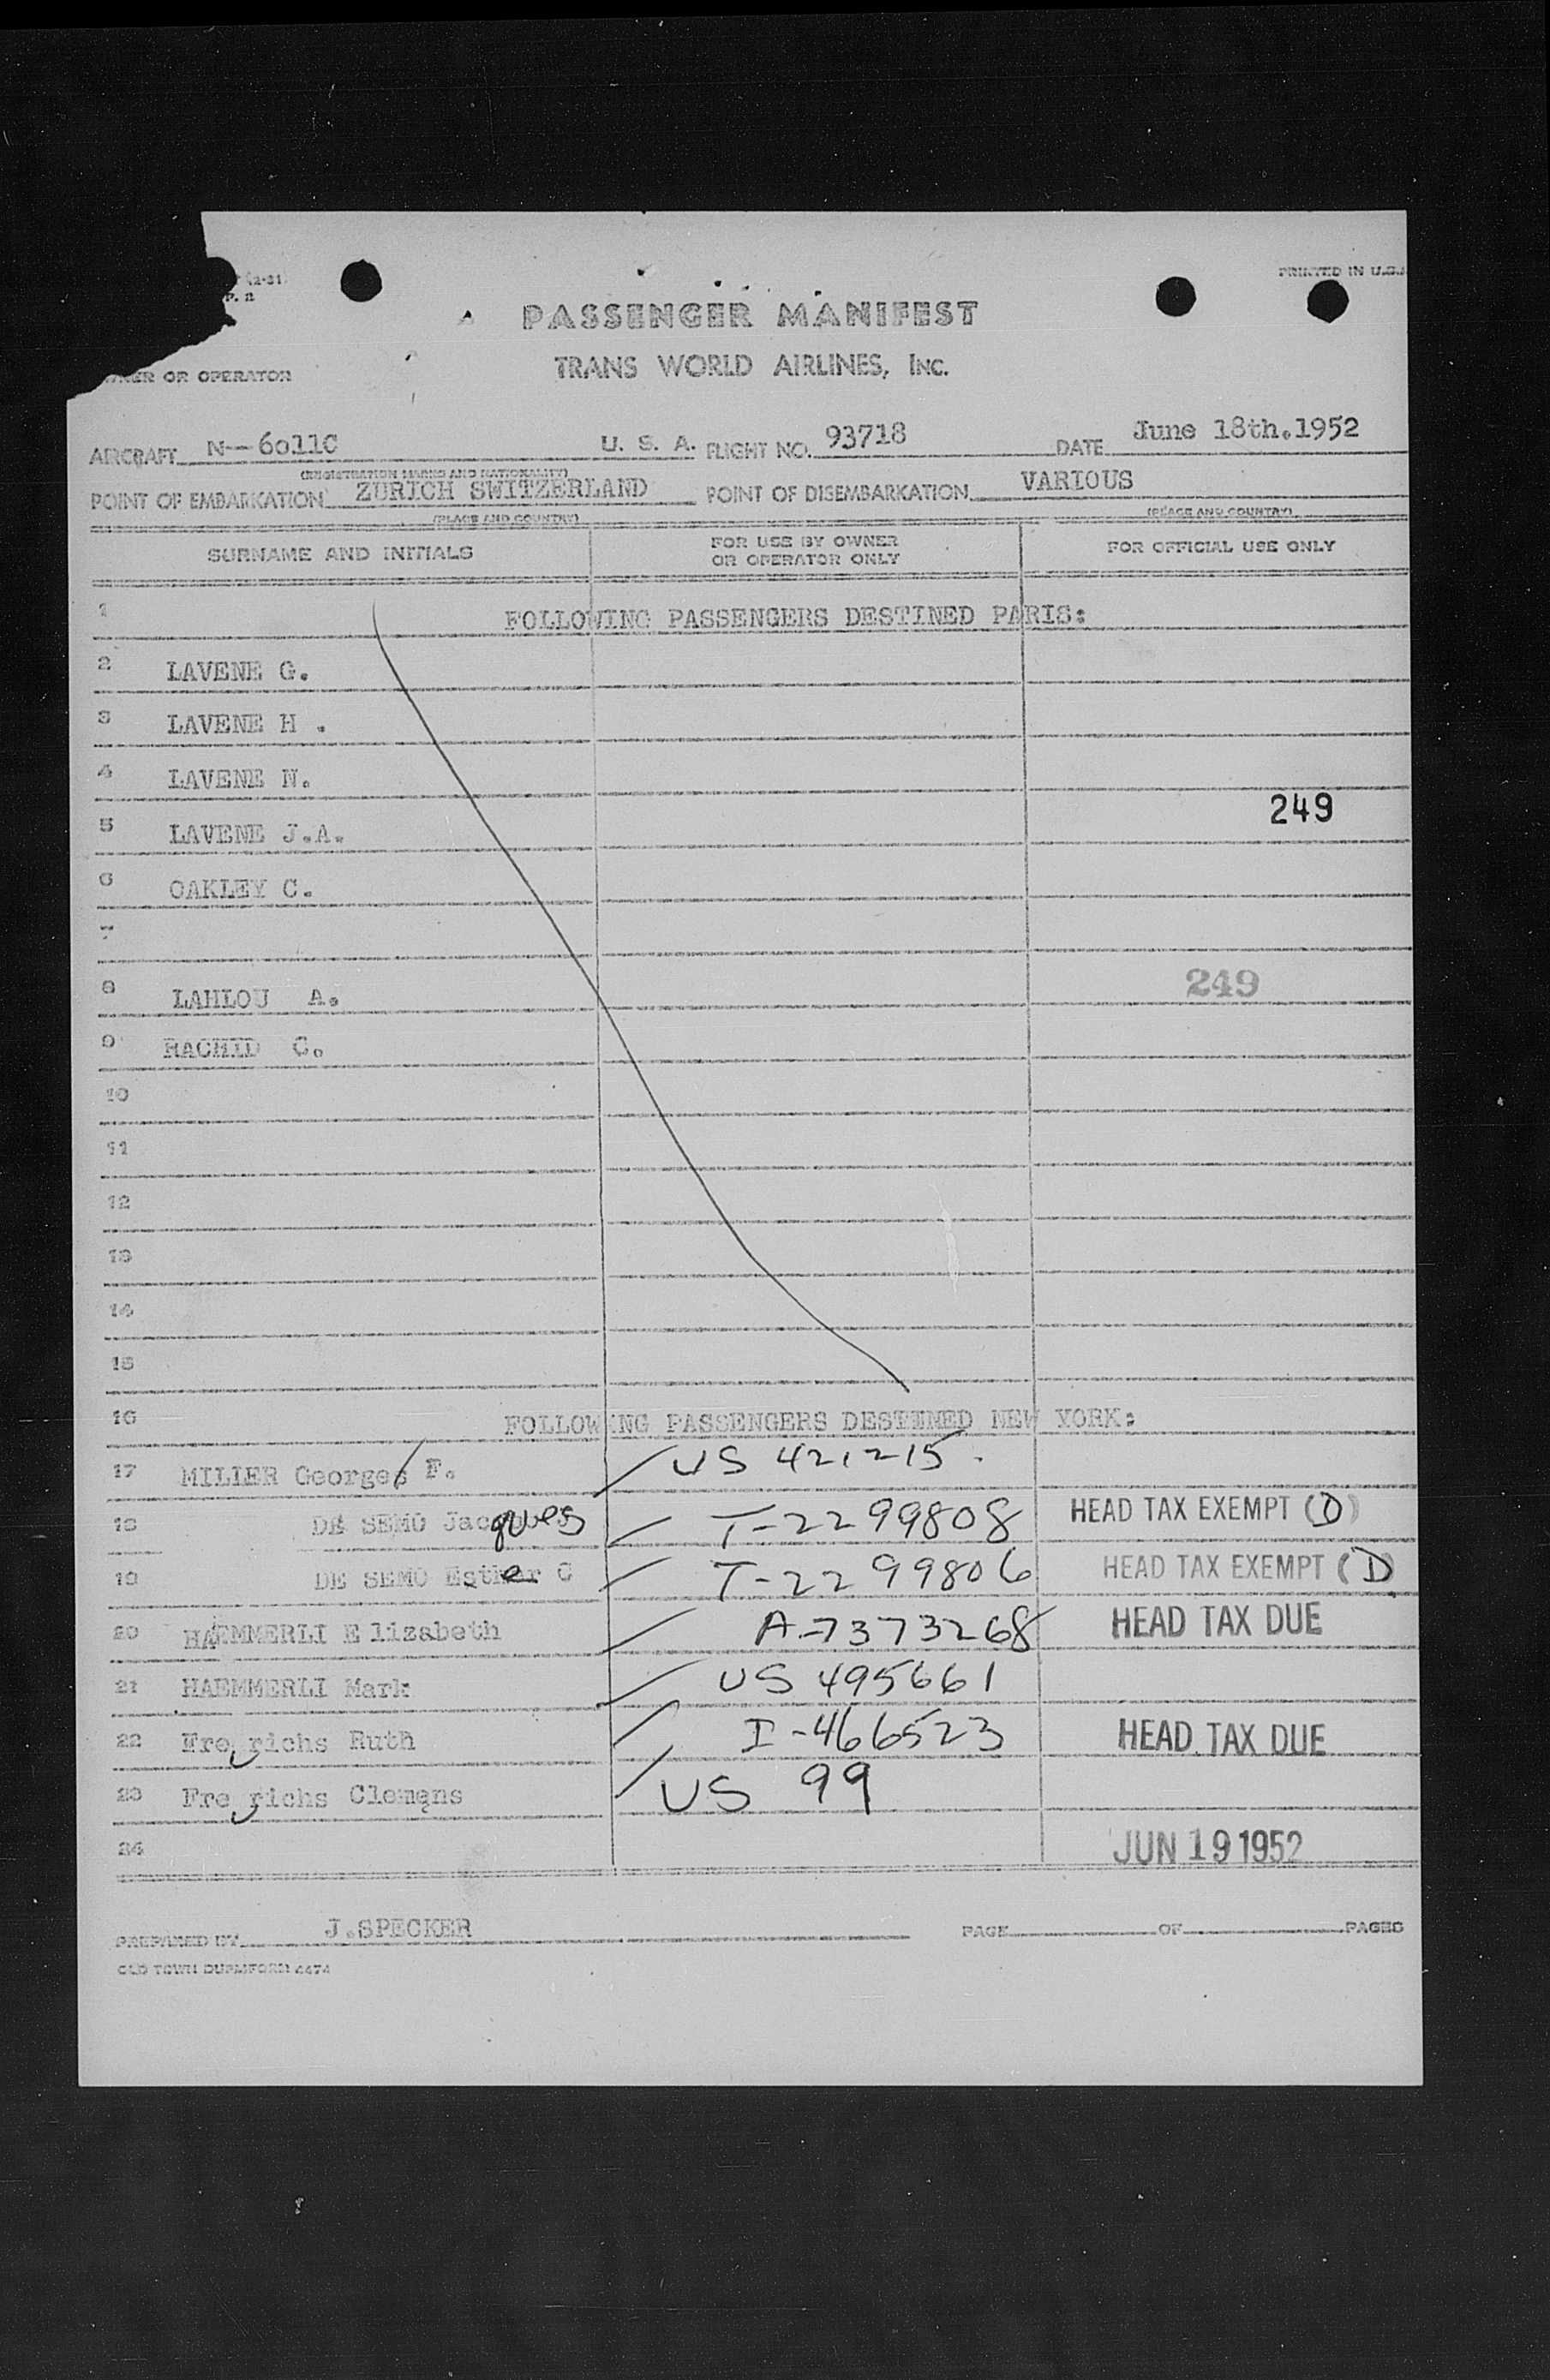 (2-51)
P. 2
PRINTED IN U.S.A.
PASSENGER MANIFEST
TRANS WORLD AIRLINES, INC.
OWNER OR OPERATOR
AIRCRAFT N--6011C U. S. A. FLIGHT NO. 93718 DATE June 18th.1952
(REGISTRATION MARKS AND NATIONALITY)
POINT OF EMBARKATION ZURICH SWITZERLAND POINT OF DISEMBARKATION VARIOUS
(PLACE AND COUNTRY) (PLACE AND COUNTRY)
SURNAME AND INITIALS FOR USE BY OWNER OR OPERATOR ONLY FOR OFFICIAL USE ONLY
1 FOLLOWING PASSENGERS DESTINED PARIS:
2 LAVENE G.
3 LAVENE H .
4 LAVENE N.
249
5 LAVENE J.A.
6 OAKLEY C.
7
8 LAHLOU A. 249
9 RACHID C.
10
11
12
13
14
15
16 FOLLOWING PASSENGERS DESTINED NEW YORK:
17 MILLER Georges F. US 421215.
18 DE SEMO Jacques T-2299808 HEAD TAX EXEMPT (D)
19 DE SEMO Esther C T-2299806 HEAD TAX EXEMPT (D)
20 HAEMMERLI E lizabeth A-7373268 HEAD TAX DUE
21 HAEMMERLI Mark US 495661
22 Fre richs Ruth I-466523 HEAD TAX DUE
23 Fre richs Clemens US 99
24 JUN 19 1952
PREPARED BY J.SPECKER PAGE OF PAGES
OLD TOWN DUPLIFORM 4474